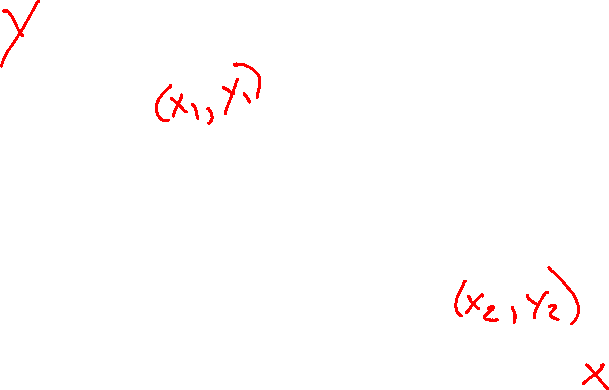 y
(x₁, y₁)
(x₂, y₂)
x